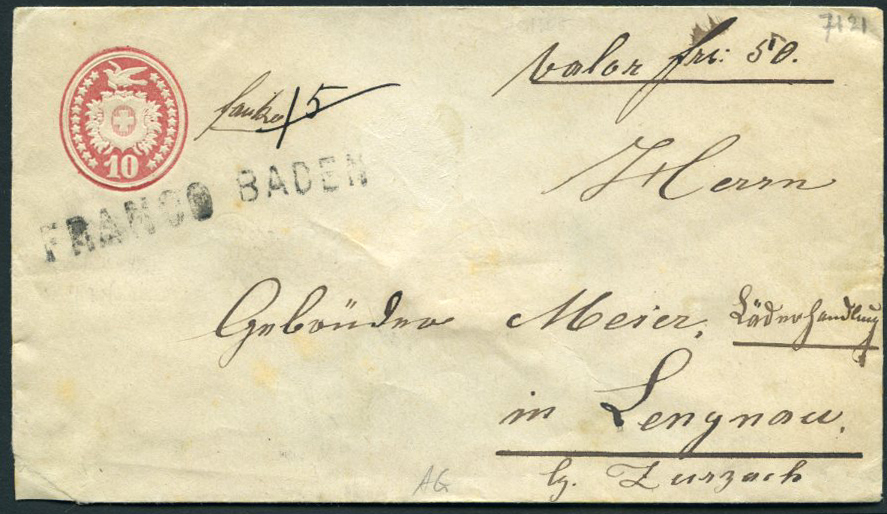 7121
Valor frs: 50.
10
franko 15
FRANCO BADEN
Herrn
Gebrüder Meier, Läderhandlung
in Lengnau.
bz. Zurzach
AG